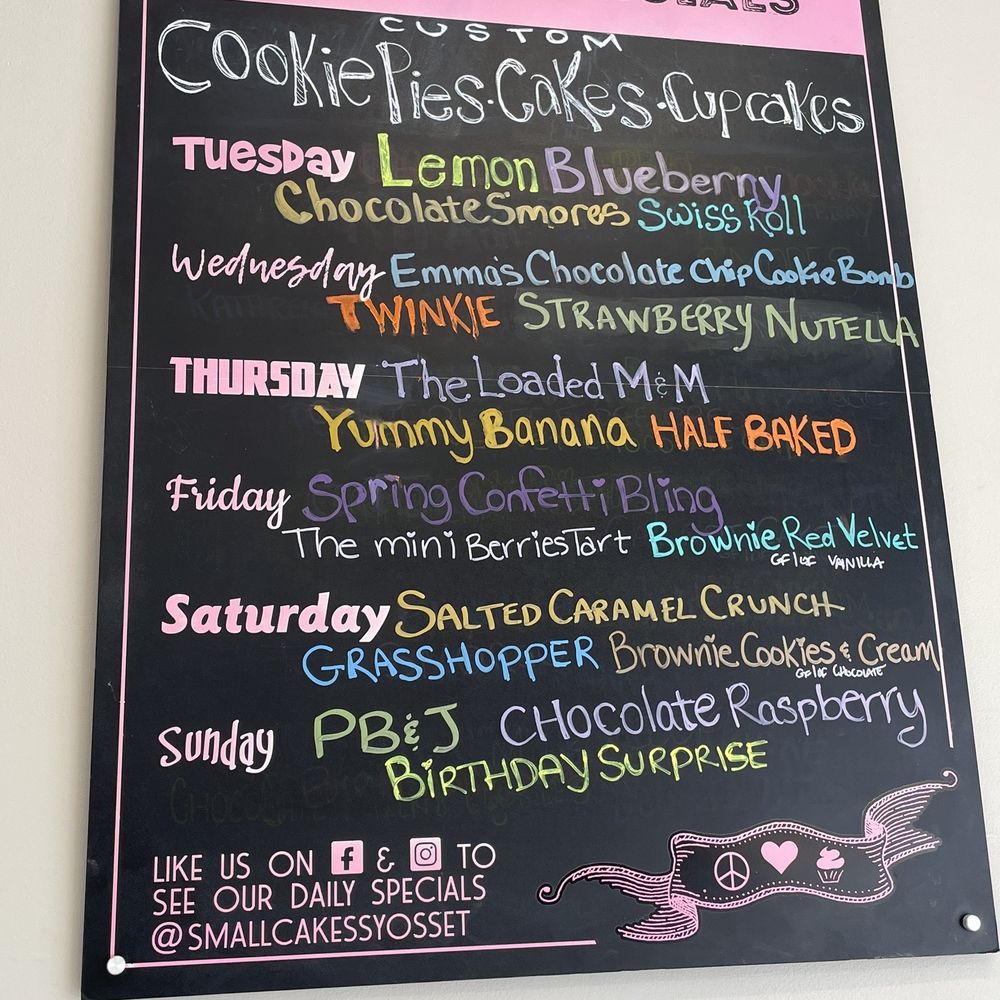 CUSTOM
Cookie Pies · Cakes · Cupcakes
Tuesday Lemon Blueberry
Chocolate Smores Swiss Roll
Wednesday Emma's Chocolate Chip Cookie Bomb
TWINKIE STRAWBERRY NUTELLA
THURSDAY The Loaded M&M
Yummy Banana HALF BAKED
Friday Spring Confetti Bling
The mini Berries Tart Brownie Red Velvet
GF|GF VANILLA
Saturday SALTED CARAMEL CRUNCH
GRASSHOPPER Brownie Cookies & Cream
GF|GF CHOCOLATE
Sunday PB&J CHocolate Raspberry
BiRTHDAY SURPRISE
LIKE US ON & TO
SEE OUR DAILY SPECIALS
@SMALLCAKESSYOSSET